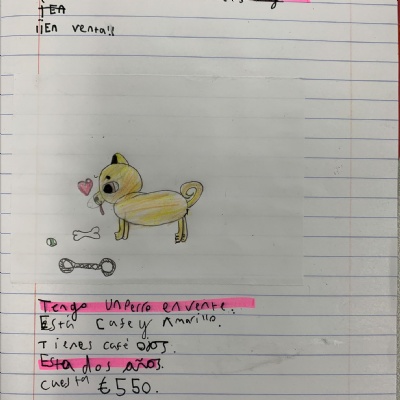 ¡¡En venta!!
Tengo un perro en vente.
Está cafe y Amarillo.
Tienes café ojos.
Esta dos años.
cuesta €550.